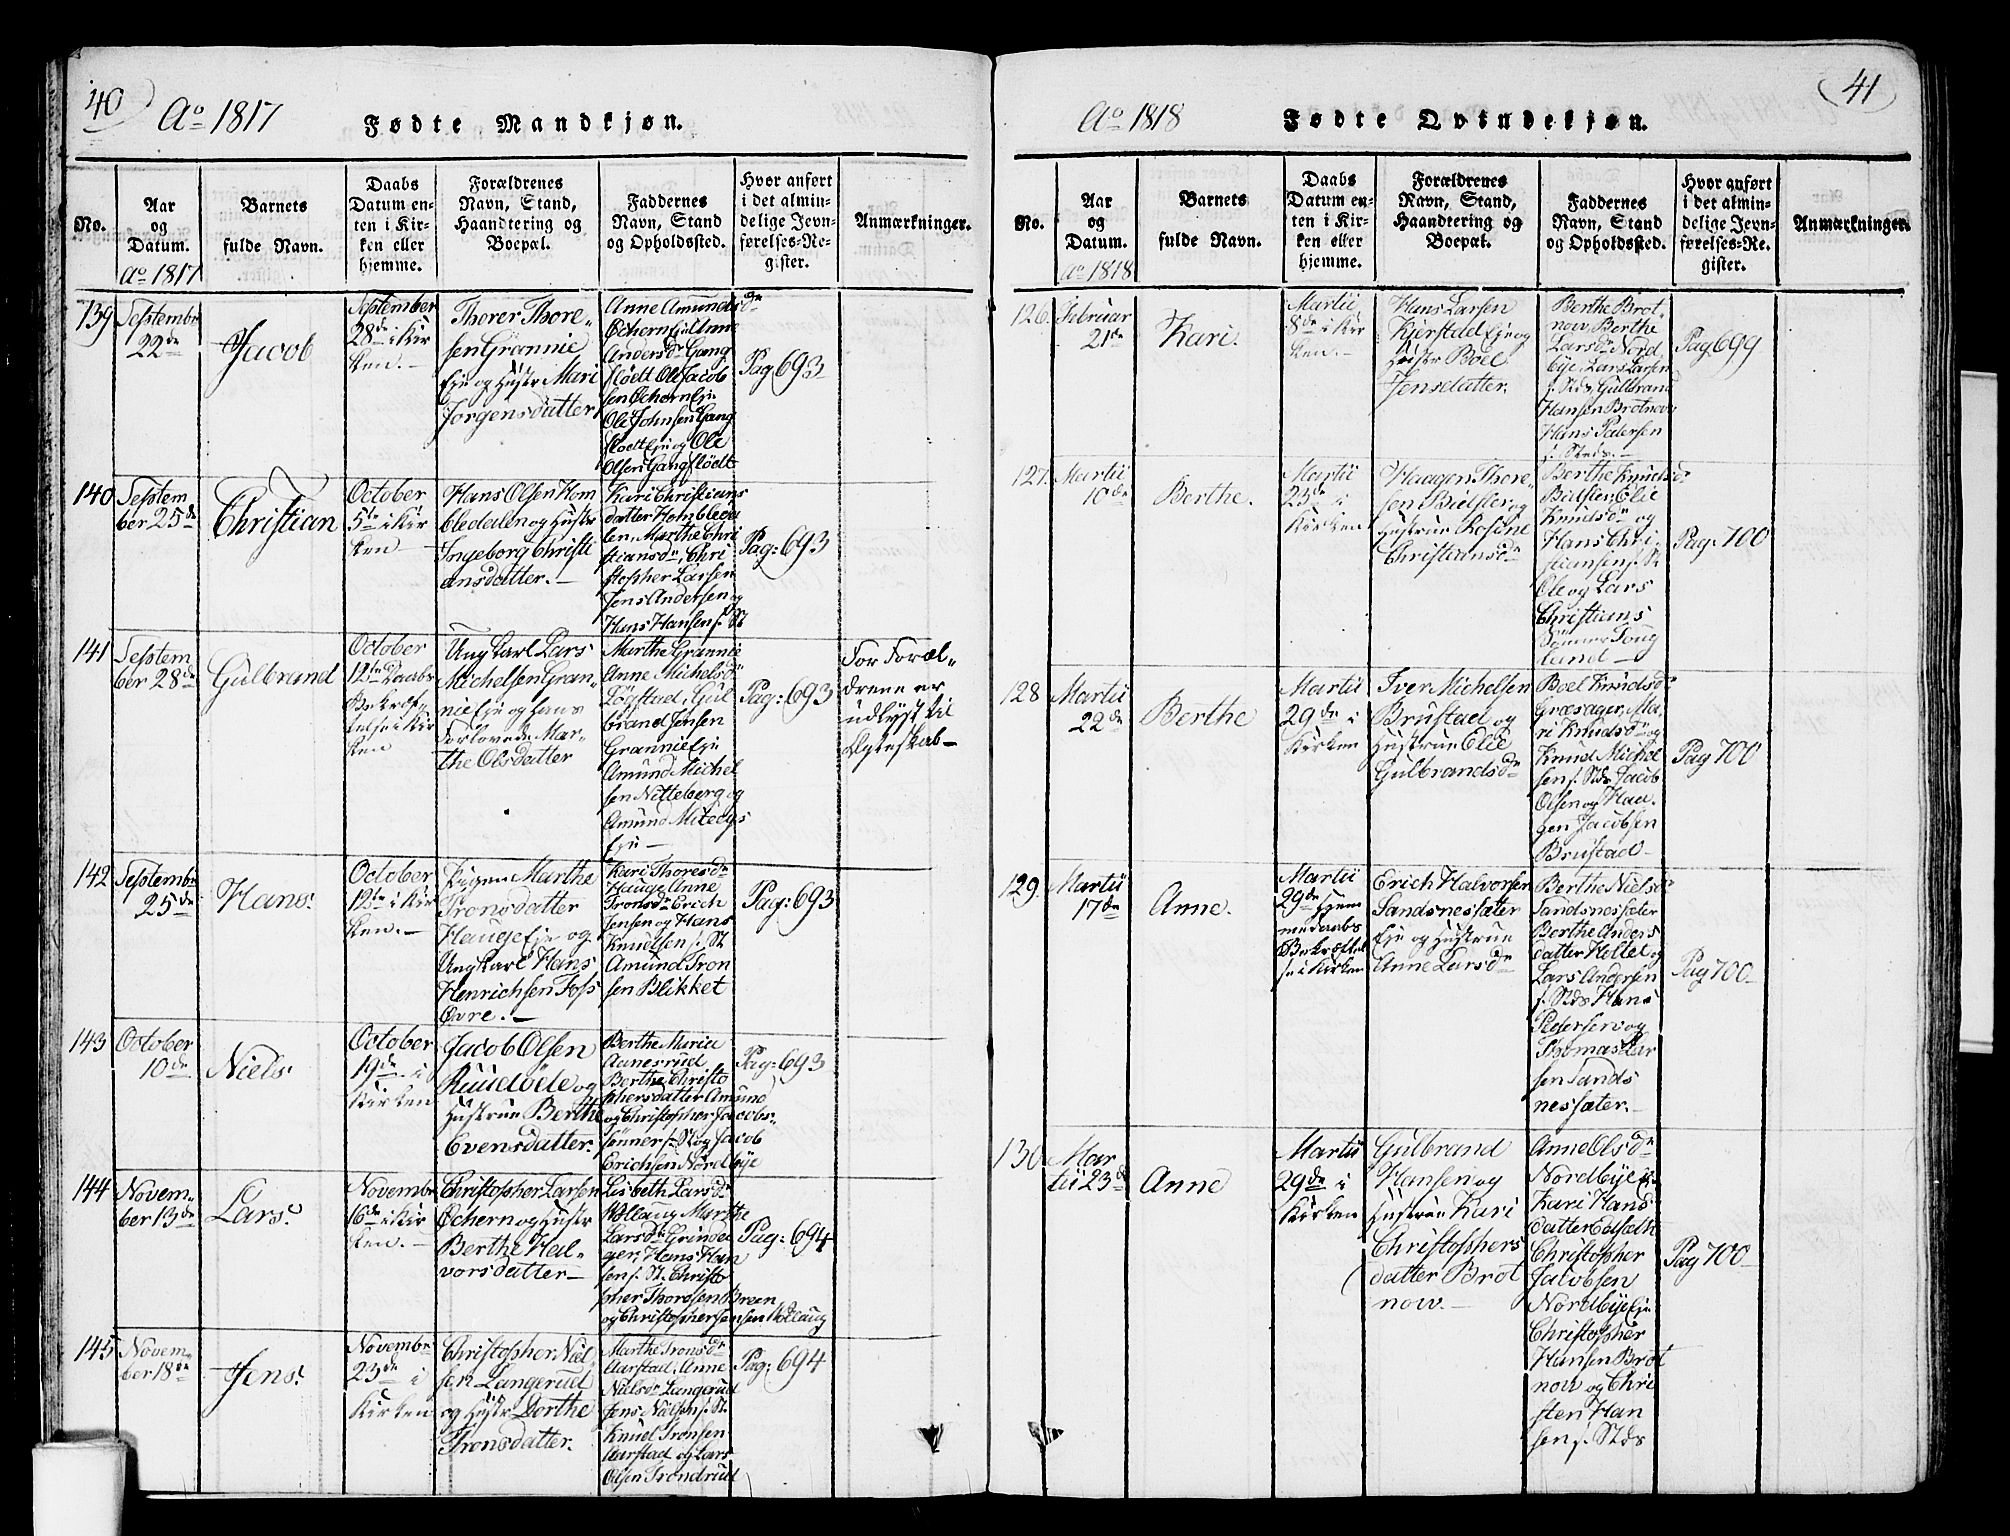 40
Ao 1817
Fødte Mandkjøn.
No.
Aar
og
Datum.
Ao 1817
Barnets
fulde Navn.
Daabs
Datum en-
ten i Kir-
ken eller
hjemme.
Forældrenes
Navn, Stand,
Haandtering og
Boepæl.
Faddernes
Navn, Stand
og Opholdssted.
Hvor anført
i det almin-
delige Jevn-
førelses-Re-
gister.
Anmærkninger.
139
Septembr
22de
Jacob
September
28de i Kir
ken.-
Thorer Thore-
sen Grannie
Eje og Hustr Mari
Jørgensdatter
Anne Amundsdr
Ochern Eje Anne
Andersdr Gang
flødt Ole Jacob
sen Ochern Eje
Ole Johnsen Gang
flødt Eje og Ole
Olsen Gangflødt
Pag 693
140
Septem
ber 25de
Christian
October
5te i Kir
ken-
Hans Olsen Hom
bledalen og Hustr
Ingeborg Christi
ansdatter.-
Kari Christians
datter Hombleda
len, Marthe Chri
stiansdr, Chri
stopher Larsen
Jens Andersen og
Hans Hansen f. St
Pag: 693
141
Septem
ber 28de
Gulbrand
October
12te Daabs
Bekræf-
telse i Kir
ken
Ungkarl Lars
Michelsen Gran-
nie Eje og Hans
Forlovede Mar-
the Olsdatter
Marthe Grannie
Anne Michelsdr
Løgstad, Gul
brand Jensen
Grannie Eje
Amund Michel
sen Nitteberg og
Amund
Eje-
Pag: 693
For Foræl-
drene er
udlyst til
Ægteskab-
142
Septembr
25de
Hans.
October
12te i Kir
ken.-
Pigen Marthe
Tronsdatter
Hauge Eje og
Ungkarl Hans
Henrichsen Foss
Øvre.-
Kari Thoresdr
Hauge Anne
Tronsdr Erich
Jensen og Hans
Knudsen f. St
Amund Tron
sen Blikket
Pag: 693
143
October
10de
Niels.
October
19de i
Kirken
Jacob Olsen
Ruudløde og
Hustrue Berthe
Evensdatter.
Berthe Maria
Aanesrud
Berthe Christo
phersdatter Amund
og Christopher Jacobs-
sønner f. St og Jacob
Erichsen Nordbye
Pag: 693
144
Novem-
ber 13de
Lars.
Novembr
16de i Kir
ken.-
Christopher Larsen
Ochern og Hustr
Berthe Hal-
vorsdatter-
Lisbeth Larsdr
Hollaug Marthe
Larsdr Grinda
ger, Hans Han
sen f. St. Christo
pher Thordsen Breen
og Christophersen Hollaug
Pag: 694
145
Novem-
ber 18de
Jens.
Novembr
23de i
Kirken
Christopher Niel
sen Langerud
og Hustr Dorthe
Tronsdatter.
Marthe Tronsdr
Aarstad, Anne
Nielsdr Langerud
Jens Nielsen f. St.
Knud Tronsen
Aarstad og Lars
Olsen Trondrud
Pag: 694
41
Ao 1818
Fødte Qvindekjøn.
No.
Aar
og
Datum.
Ao 1818
Barnets
fulde Navn.
Daabs
Datum en-
ten i Kir-
ken eller
hjemme.
Forældrenes
Navn, Stand,
Haandtering og
Boepæl.
Faddernes
Navn, Stand
og Opholdssted.
Hvor anført
i det almin-
delige Jevn-
førelses-Re-
gister.
Anmærkninger.
126.
Februar
21de
Kari.
Martii
8de i Kir
ken.-
Hans Larsen
Kjerstad Eje og
Hustr Boel
Jensdatter.
Berthe Brot
now, Berthe
Larsdr Nord
bye, Lars Larsen
f. Sts, Gulbrand
Hansen Brotnow
Hans Pedersen
f. Steds.-
Pag 699
127.
Martii
10de
Berthe.
Martii
23de i
Kirken
Haagen Thore-
sen Bølsler og
Hustrue Rosine
Christiansdr
Berthe Knudsdr
Bølsler, Elie
Knudsdr og
Hans Chri-
stiansen f. St
Ole og Lars
Christians
Sønner Toug
land-
Pag. 700
128
Martii
22de
Berthe
Martii
29de i
Kirken
Iver Michelsen
Brustad og
Hustrue Elie
Gulbrandsdr
Boel Knudsdr
Græsager, Ma-
ri Knudsdr og
Knud Michel
sen f. Sts, Jacob
Olsen og Haa-
gen Jacobsen
Brustad-
Pag 700
129.
Martii
17de
Anne.
Martii
29de Hjem
medaabs
Bekræftel
se i Kirken
Erich Halvorsen
Sandsnessæter
Eje og Hustrue
Anne Larsdr
Berthe Nielsdr
Sandsnessæter
Berthe Anders
datter Hellet og
Lars Andersen
f. Sts Hans
Pedersen og
Thomas Lar
sen Sands
nessæter.-
Pag 700-
130
Mar
tii 23de
Anne
Martii
29de i
Kirken
Gulbrand
Hansen og
Hustrue Kari
Christophers
datter Brot
now.-
Anne Olsdr
Nordbye Eje
Kari Hans
datter
Christopher
Jacobsen
Nordbye Eje
Christopher
Hansen Brot
now og Chri
sten Han
sen f. Steds
Pag 700-